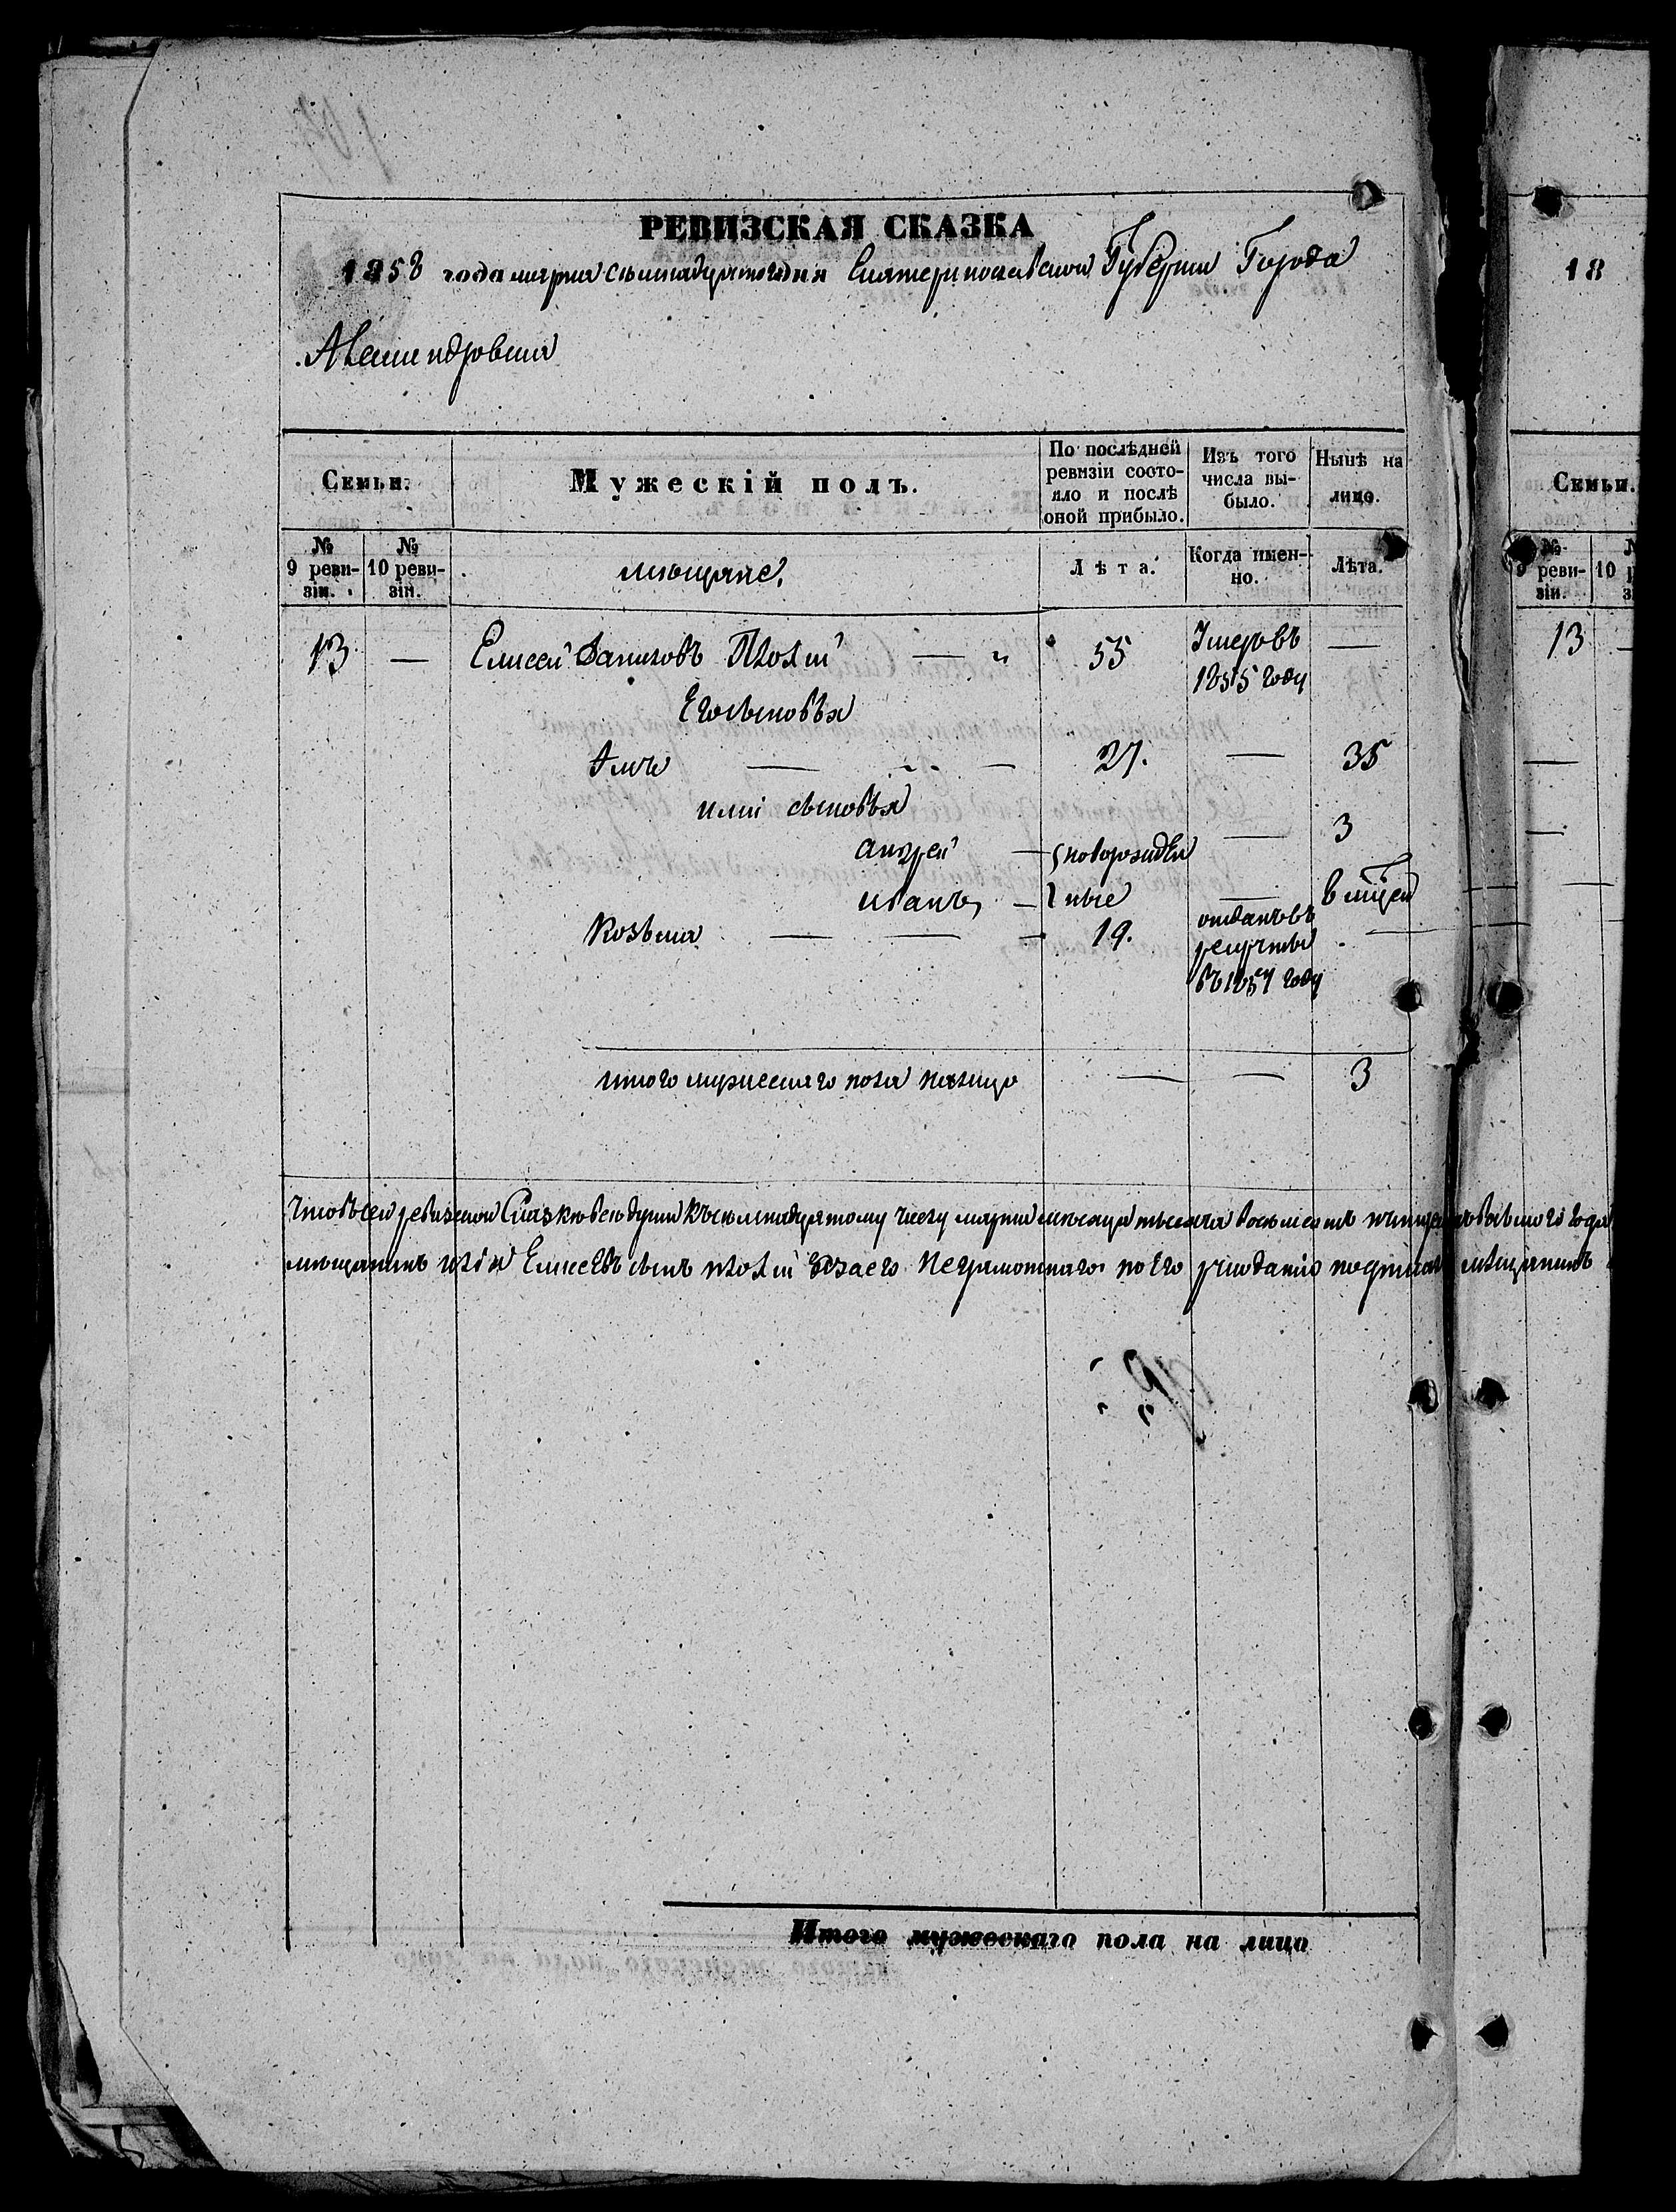 РЕВИЗСКАЯ СКАЗКА
1858 года марта семнадцатого дня Екатеринославской Губернии Города
Александровска
Семьи.
Мужескій полъ.
По послѣдней ревизіи состояло и послѣ оной прибыло.
Изъ того числа выбыло.
Нынѣ на лицо.
№ 9 ревизіи.
№ 10 ревизіи.
мѣщане.
Лѣта.
Когда именно.
Лѣта.
13 — Елисей Даниловъ — 55 Умеръ въ 1855 году —
Его сыновья
27. — 35
сыновья
Андрей — новорожден — 3
Иванъ — ные —
Козьма — — 19. отданъ въ рекруты въ 1854 году —
итого мужескаго пола налицо — — 3
Что въ сей ревизской Сказке все души къ семнадцатому числу марта месяца тысяча восемьсотъ пятьдесятъ восьмого года
мещанинъ Елисеевъ сынъ а за его неграмотнаго по Его мещанинъ
Итого мужескаго пола на лицо
18
Семьи.
№ 9 ревизіи.
10
13 —
—
—